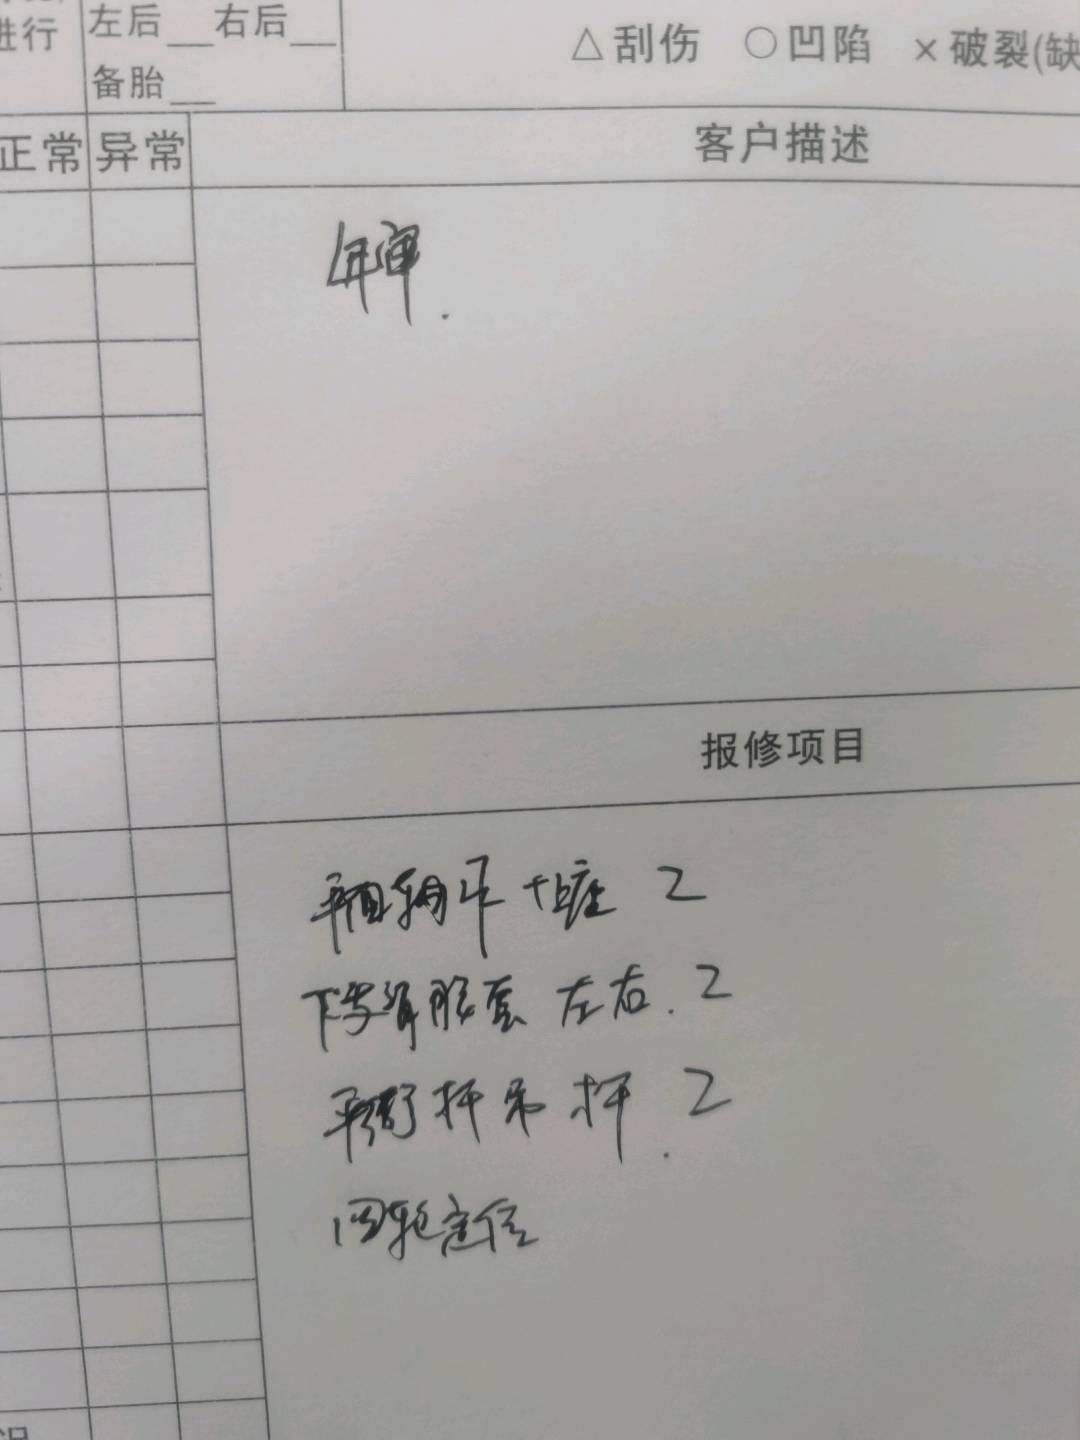 进行
左后__右后__
△刮伤 ○凹陷 ×破裂(缺
备胎__
正常 异常 客户描述
年审.
报修项目
2
下 胶套 左右. 2
平衡杆吊杆. 2
四轮定位
况